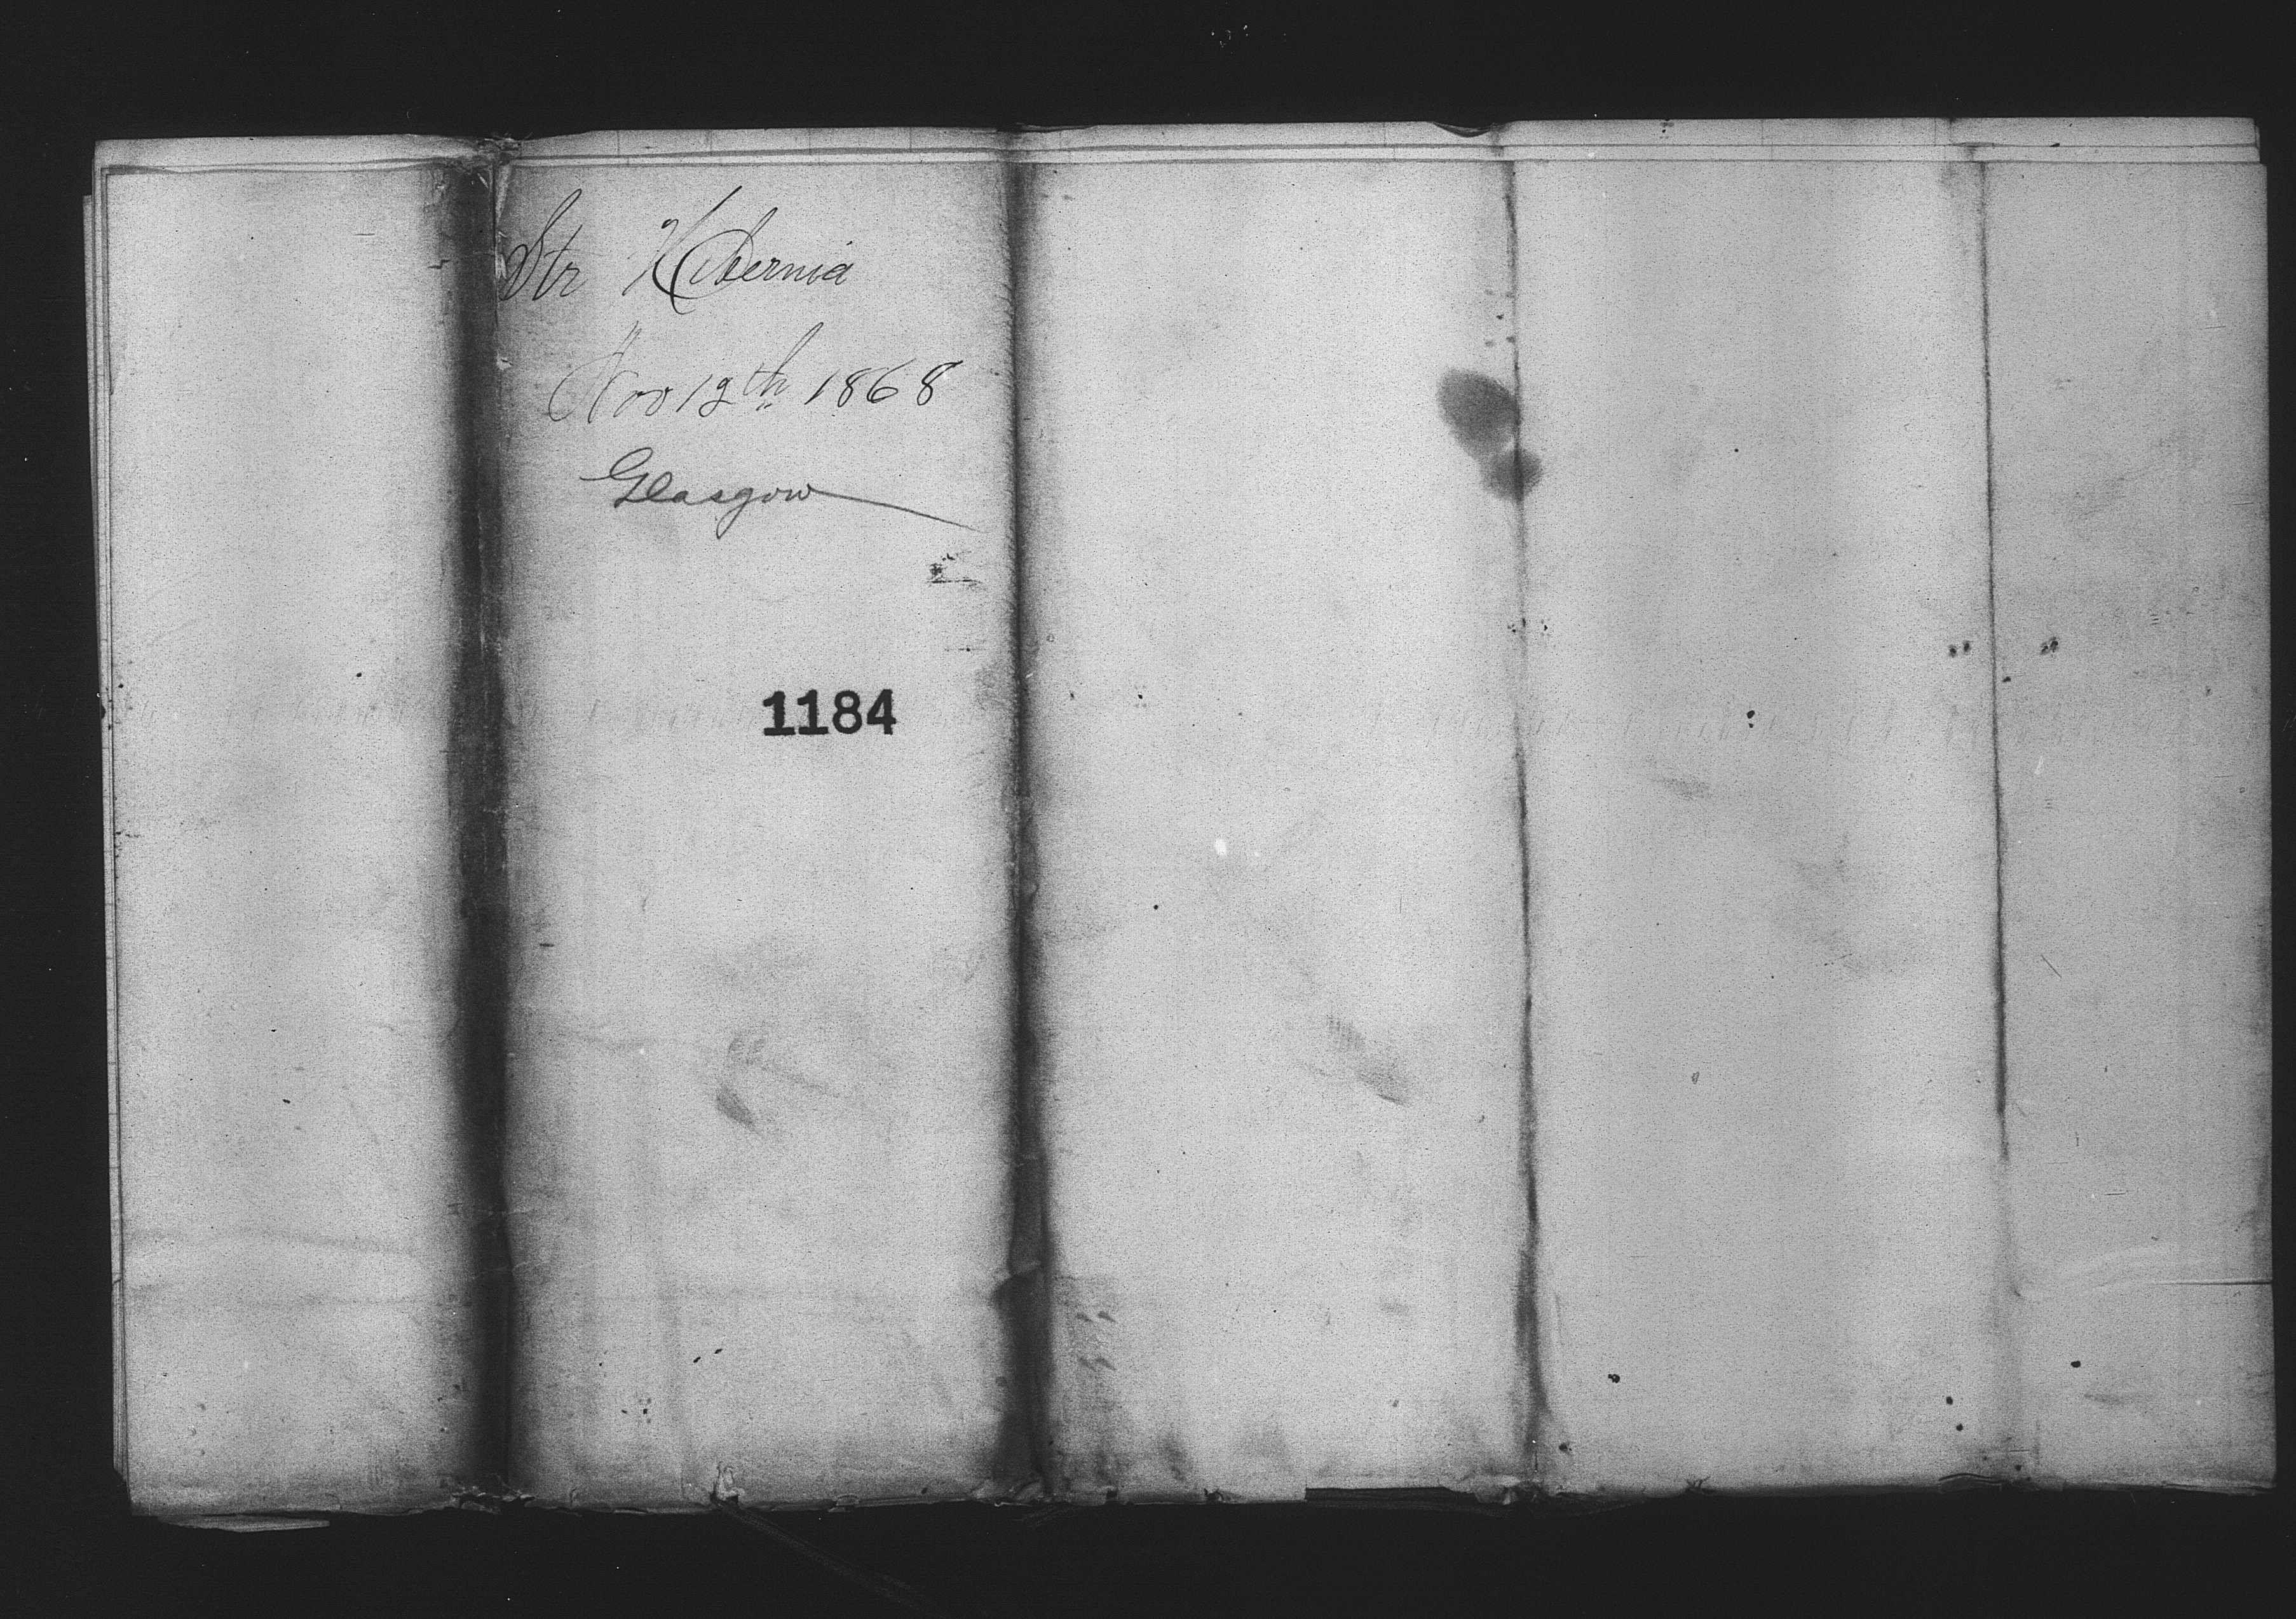 Str Hibernia
Nov 12th 1868
Glasgow
1184